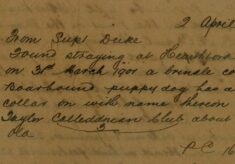 2 April
From Supt Duke
Found straying at
on 31st March 1901 a brindle
Boarhound puppy dog has a
collar on with name thereon
Taylor club about
old
P.C. 16